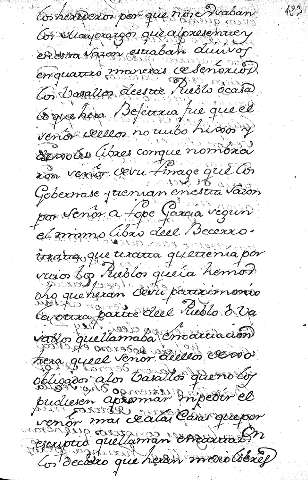 423
los herederos por que no llevaban
los Mayorazgos que al presente y
en esta razon estaban divisos
en quatro maneras de señorio en
los Vasallos de este Pueblo a casa
lo que hera Behetria fue que el
señor de ellos no hubo hijos y
libres con que nombra
ron señor de su linage que los
Governase y tenian en esta razon
por señor a Lope Garcia segun
el mismo libro de el Becerro
que tratta que tenia por
suios los Pueblos que ia hemos
dho que heran de su patrimonio
la otra parte de el Pueblo o Va
sallos que llamaba encartacion
hera que el señor de ellos
obligado a los Vasallos que no los
pudiesen apremiar ni pedir el
señor mas de alas cosas que por
escripto que llaman
En
los decreto que heran medio libres